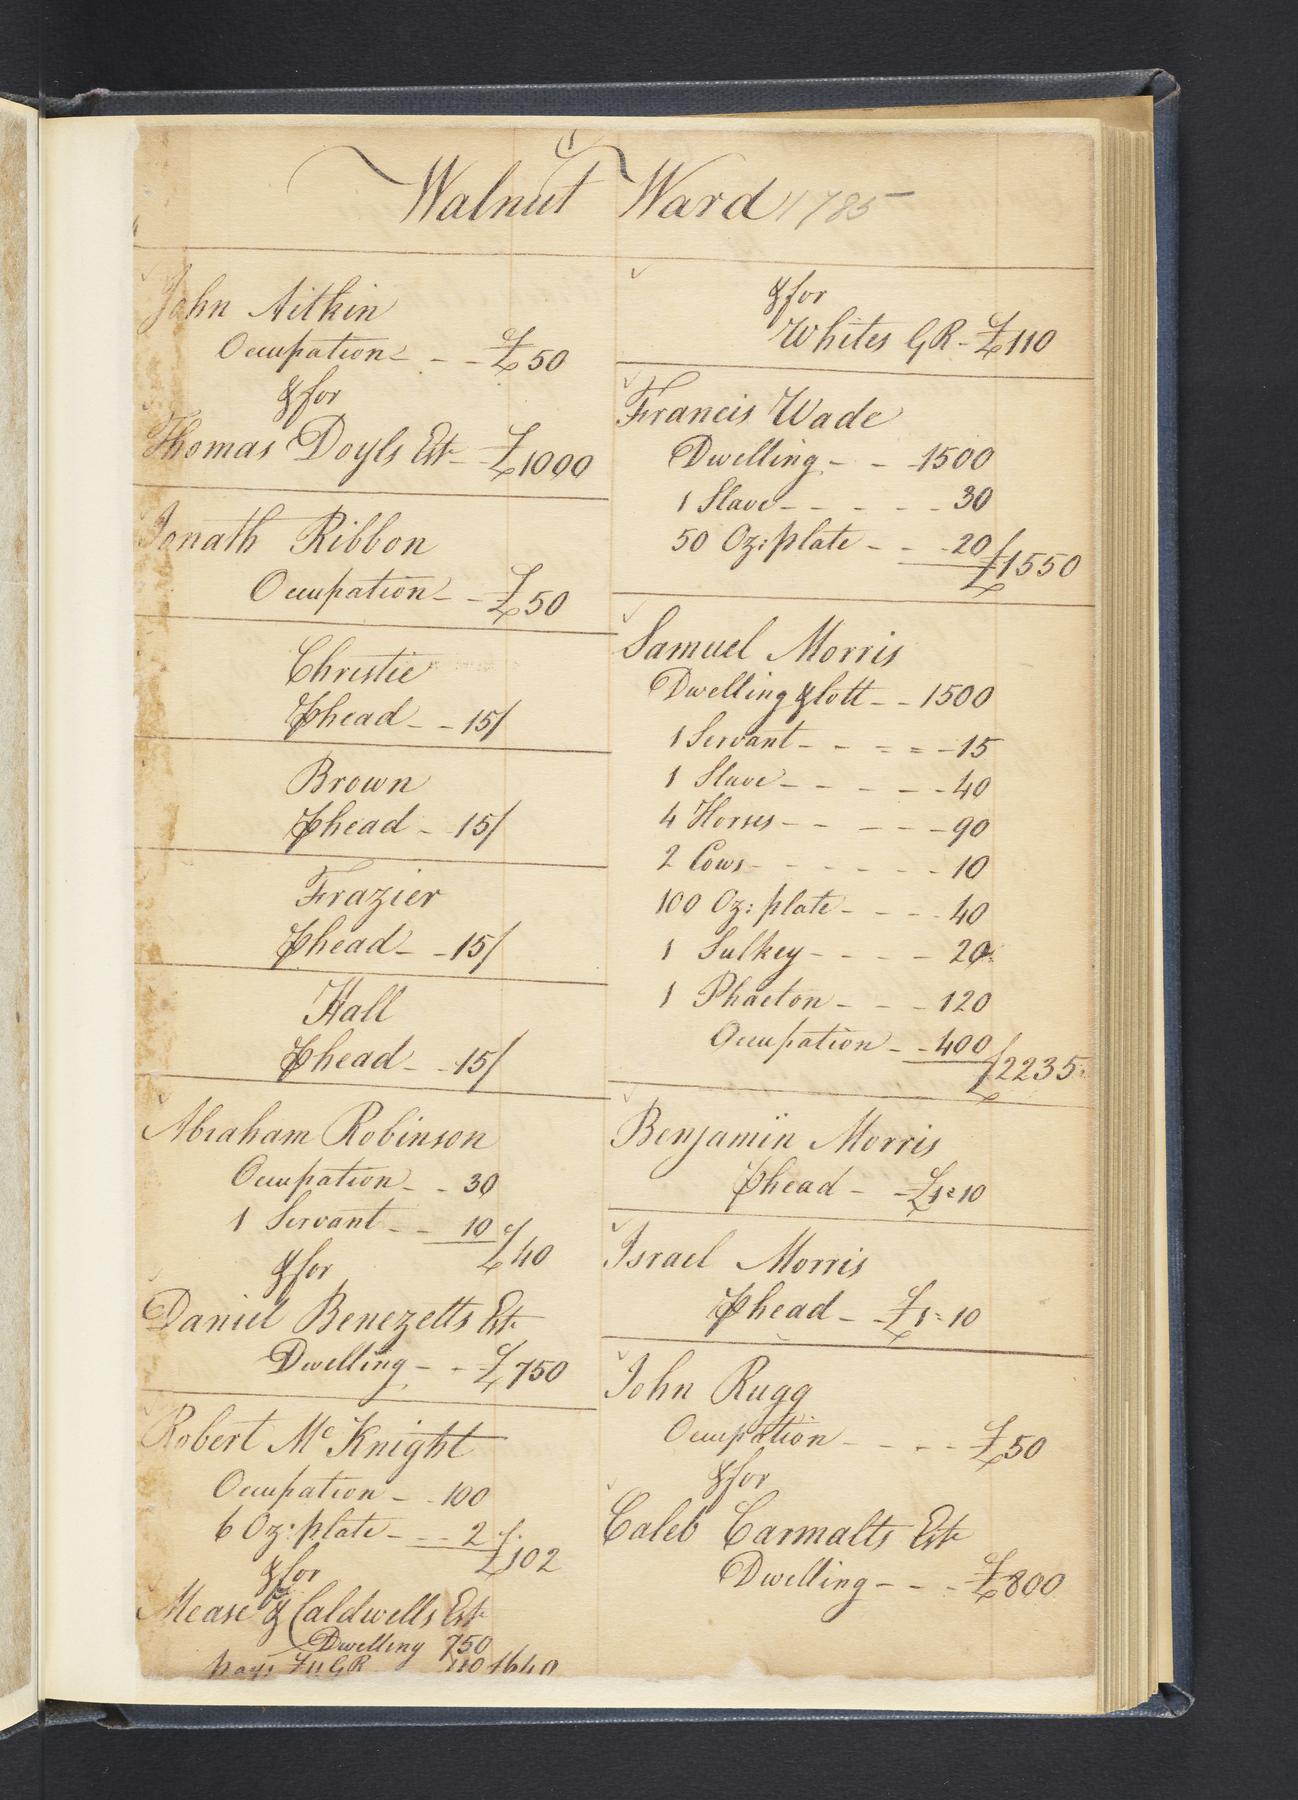 Walnut Ward 1785
John Aitkin
Occupation - - £50
& for
Thomas Doyls Est - £1000
Jonath Ribbon
Occupation - £50
Christie
⅌ head - - 15/
Brown
⅌ head - 15/
Frazier
⅌ head - - 15/
Hall
⅌ head - - 15/
Abraham Robinson
Occupation - - 30
1 Servant - - 10 £40
& for
Daniel Benezetts Est
Dwelling - - £750
Robert Mc Knight
Occupation - - 100
6 Oz: plate - - 2 £102
& for
Mease & Caldwells Est
Dwelling 750
pays £11 GR 110
& for
Whites GR - £110
Francis Wade
Dwelling - - 1500
1 Slave - - - - - 30
50 Oz: plate - - 20 £1550
Samuel Morris
Dwelling & lott - - 1500
1 Servant - - - - - 15
1 Slave - - - - - 40
4 Horses - - - - - 90
2 Cows - - - - - 10
100 Oz: plate - - - - 40
1 Sulkey - - - - 20
1 Phaeton - - - 120
Occupation - - 400 £2235
Benjamin Morris
⅌ head - - £1=10
Israel Morris
⅌ head - - £1=10
John Rugg
Occupation - - - - £50
& for
Caleb Carmalts Est
Dwelling - - - £800